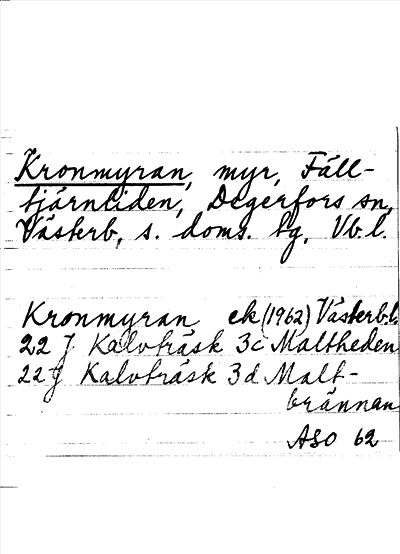 Kronmyran, myr, Fäll-
tjärnliden, Degerfors sn,
Västerb, s. doms. tg, Vb.l.
Kronmyran ek (1962) Västerb.l.
22 J Kalvträsk 3c Maltheden
22 J Kalvträsk 3d Malt-
brännan
ASO 62